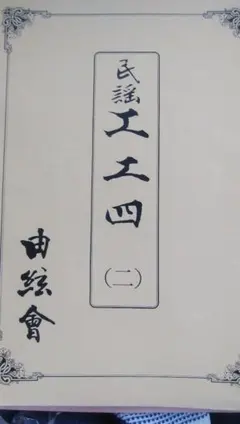 民謡工工四(二)
由絃會